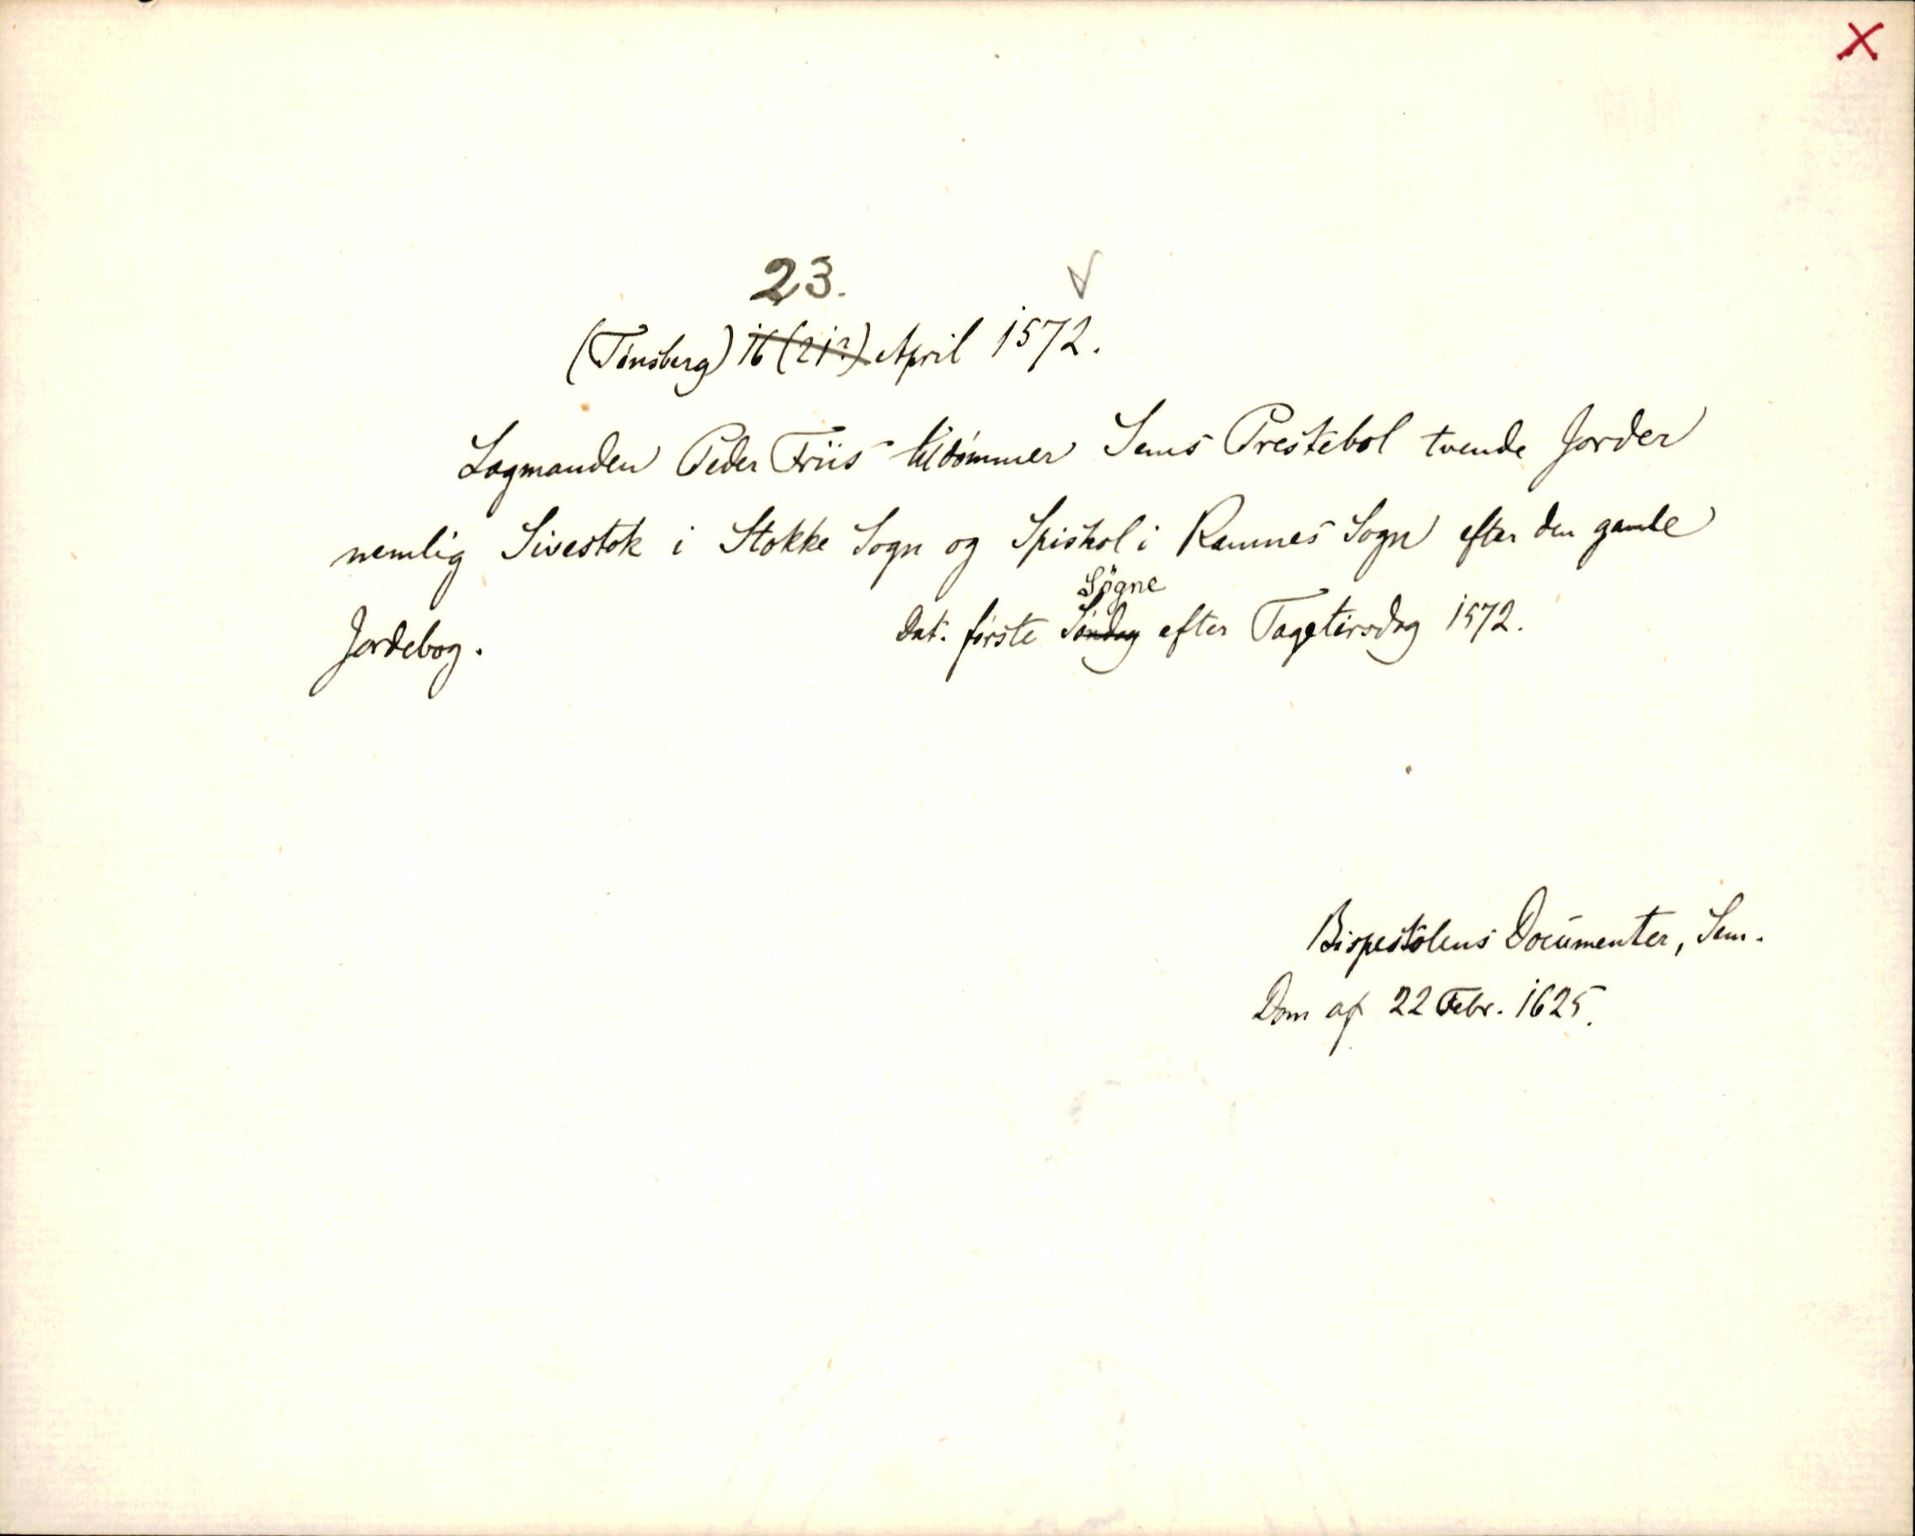 X
23.
(Tønsberg) 16 (21?) April 1572.
Lagmanden Peder Friis tildømmer Sems Prestebol tvende Jorder
nemlig Sivestok i Stokke Sogn og Spiskol i Ramnes Sogn efter den gamle
Jordebog.
Søgne
Dat. første Søndag efter Tagetirsdag 1572.
Bispestolens Documenter, Sem.
Dom af 22 Febr. 1625.